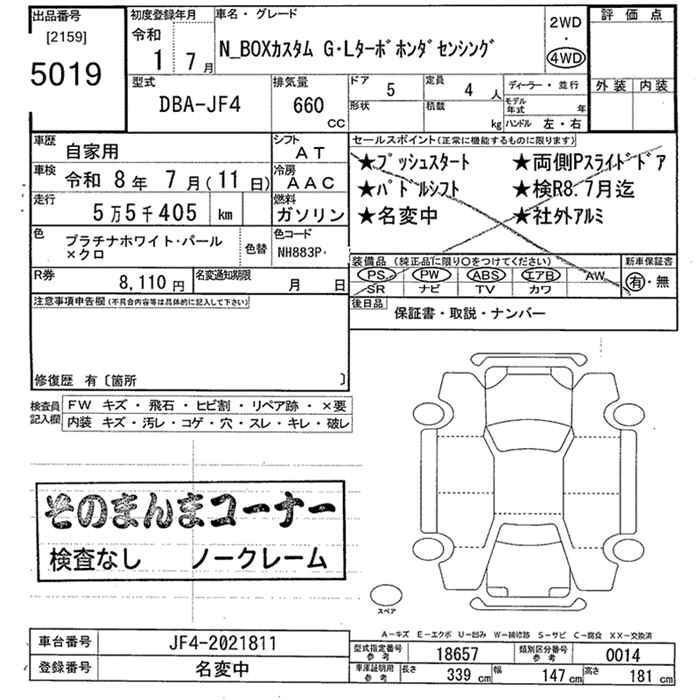 出品番号
[2159]
5019
初度登録年月
令和
1 7月
車名・グレード
N_BOXカスタム G・Lターボホンダセンシング
2WD
・
4WD
評価点
外装 内装
型式
DBA-JF4
排気量
660
CC
ドア
5
定員
4 人
形状
積載
kg
ディーラー・並行
モデル年式 年
ハンドル 左・右
車歴
自家用
シフト
AT
車検
令和 8年 7月(11日)
冷房
AAC
走行
5万5千405 km
燃料
ガソリン
色
プラチナホワイト・パール
×クロ
色替
色コード
NH883P
R券
8,110円
名変通知期限
月 日
セールスポイント(正常に機能するものに限ります)
★プッシュスタート ★両側Pスライドドア
★パドルシフト ★検R8.7月迄
★名変中 ★社外アルミ
装備品 (純正品に限り○をつけてください)
PS PW ABS エアB AW
SR ナビ TV カワ
新車保証書
有・無
後日品
保証書・取説・ナンバー
注意事項申告欄(不具合内容等は具体的に記入して下さい)
修復歴 有〔箇所 〕
検査員記入欄
FW キズ・飛石・ヒビ割・リペア跡・×要
内装 キズ・汚レ・コゲ・穴・スレ・キレ・破レ
そのまんまコーナー
検査なし ノークレーム
スペア
A-キズ E-エクボ U-凹み W-補修跡 S-サビ C-腐食 XX-交換済
車台番号
JF4-2021811
登録番号
名変中
型式指定番号
参考
18657
類別区分番号
参考
0014
車庫証明用
参考
長さ 339 cm 幅 147 cm 高さ 181 cm